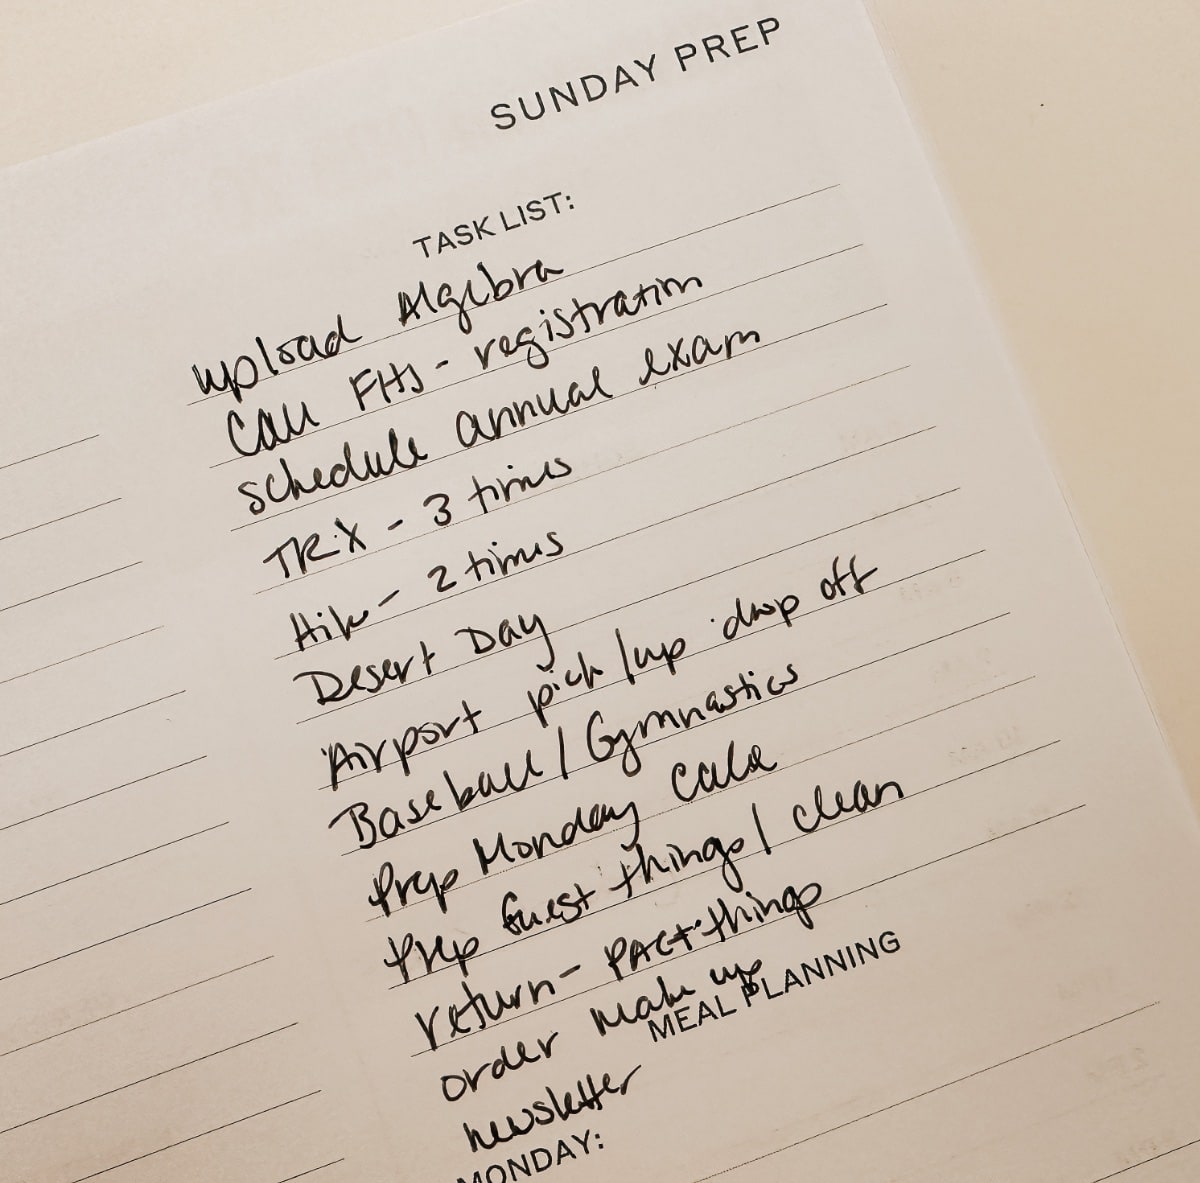 SUNDAY PREP
TASK LIST:
upload Algebra
Call FHS - registration
schedule annual exam
TRX - 3 times
Hike - 2 times
Desert Day
Airport pick/up drop off
Baseball / Gymnastics
Prep Monday
Prep Guest things / clean
return - PACT things
order make up
MEAL PLANNING
newsletter
MONDAY: